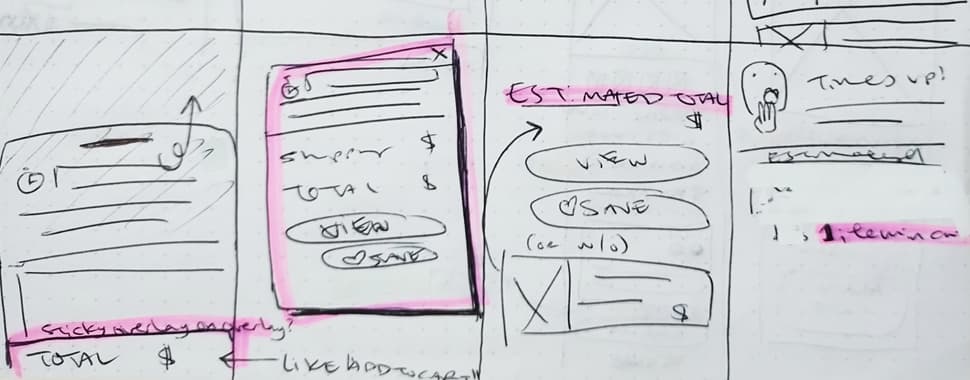 sticky overlay on overlay?
TOTAL $
LIKE "ADD TO CART"
X
$
TOTAL $
VIEW
♡SAVE
ESTIMATED TOTAL
$
VIEW
♡SAVE
(or w/o)
$
Times up!
Estimated